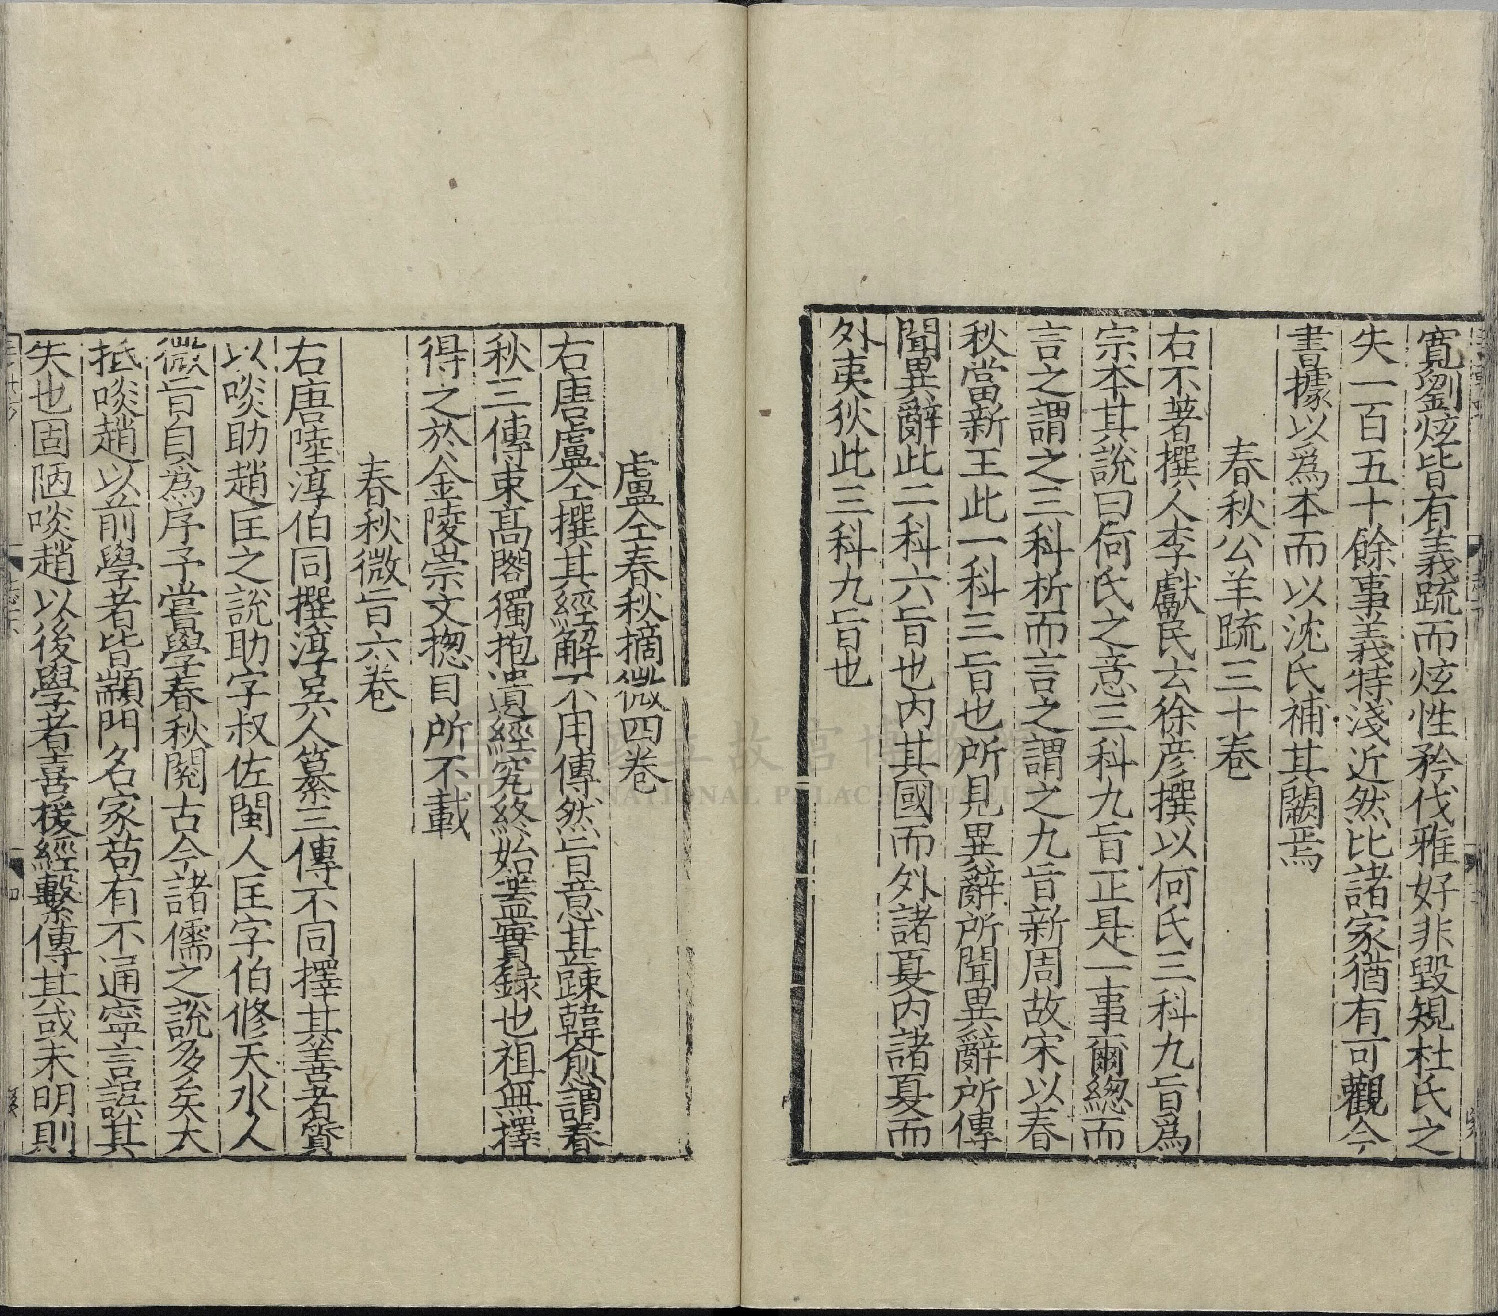 寬劉炫皆有義疏而炫性矜伐雅好非毀規杜氏之
失一百五十餘事義特淺近然比諸家猶有可觀今
書據以爲本而以沈氏補其闕焉
春秋公羊疏三十卷
右不著撰人李獻民云徐彦撰以何氏三科九旨爲
宗本其說曰何氏之意三科九旨正是一事爾總而
言之謂之三科析而言之謂之九旨新周故宋以春
秋當新王此一科三旨也所見異辭所聞異辭所傳
聞異辭此二科六旨也内其國而外諸夏内諸夏而
外夷狄此三科九旨也
盧仝春秋摘微四卷
右唐盧仝撰其經解不用傳然旨意甚疎韓愈謂春
秋三傳束高閣獨抱遺經究終始蓋實録也祖無擇
得之於金陵崇文揔目所不載
春秋微旨六卷
右唐陸淳伯同撰淳吳人纂三傳不同擇其善者質
以啖助趙匡之説助字叔佐閩人匡字伯修天水人
微旨自為序予嘗學春秋閱古今諸儒之説多矣大
抵啖趙以前學者皆顓門名家苟有不通寧言誤其
失也固陋啖趙以後學者喜援經擊傳其或未明則
國立故宮博物院
NATIONAL PALACE MUSEUM